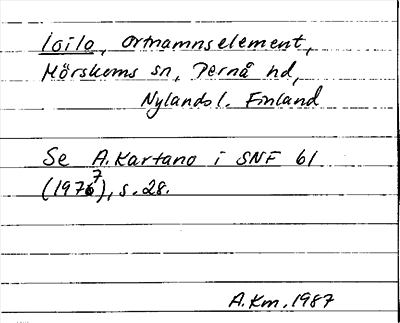 Loilo, ortnamnselement,
Mörskoms sn, Pernå hd,
Nylands l. Finland
Se A. Kartano i SNF 61
(1977), s. 28.
A.Km. 1987